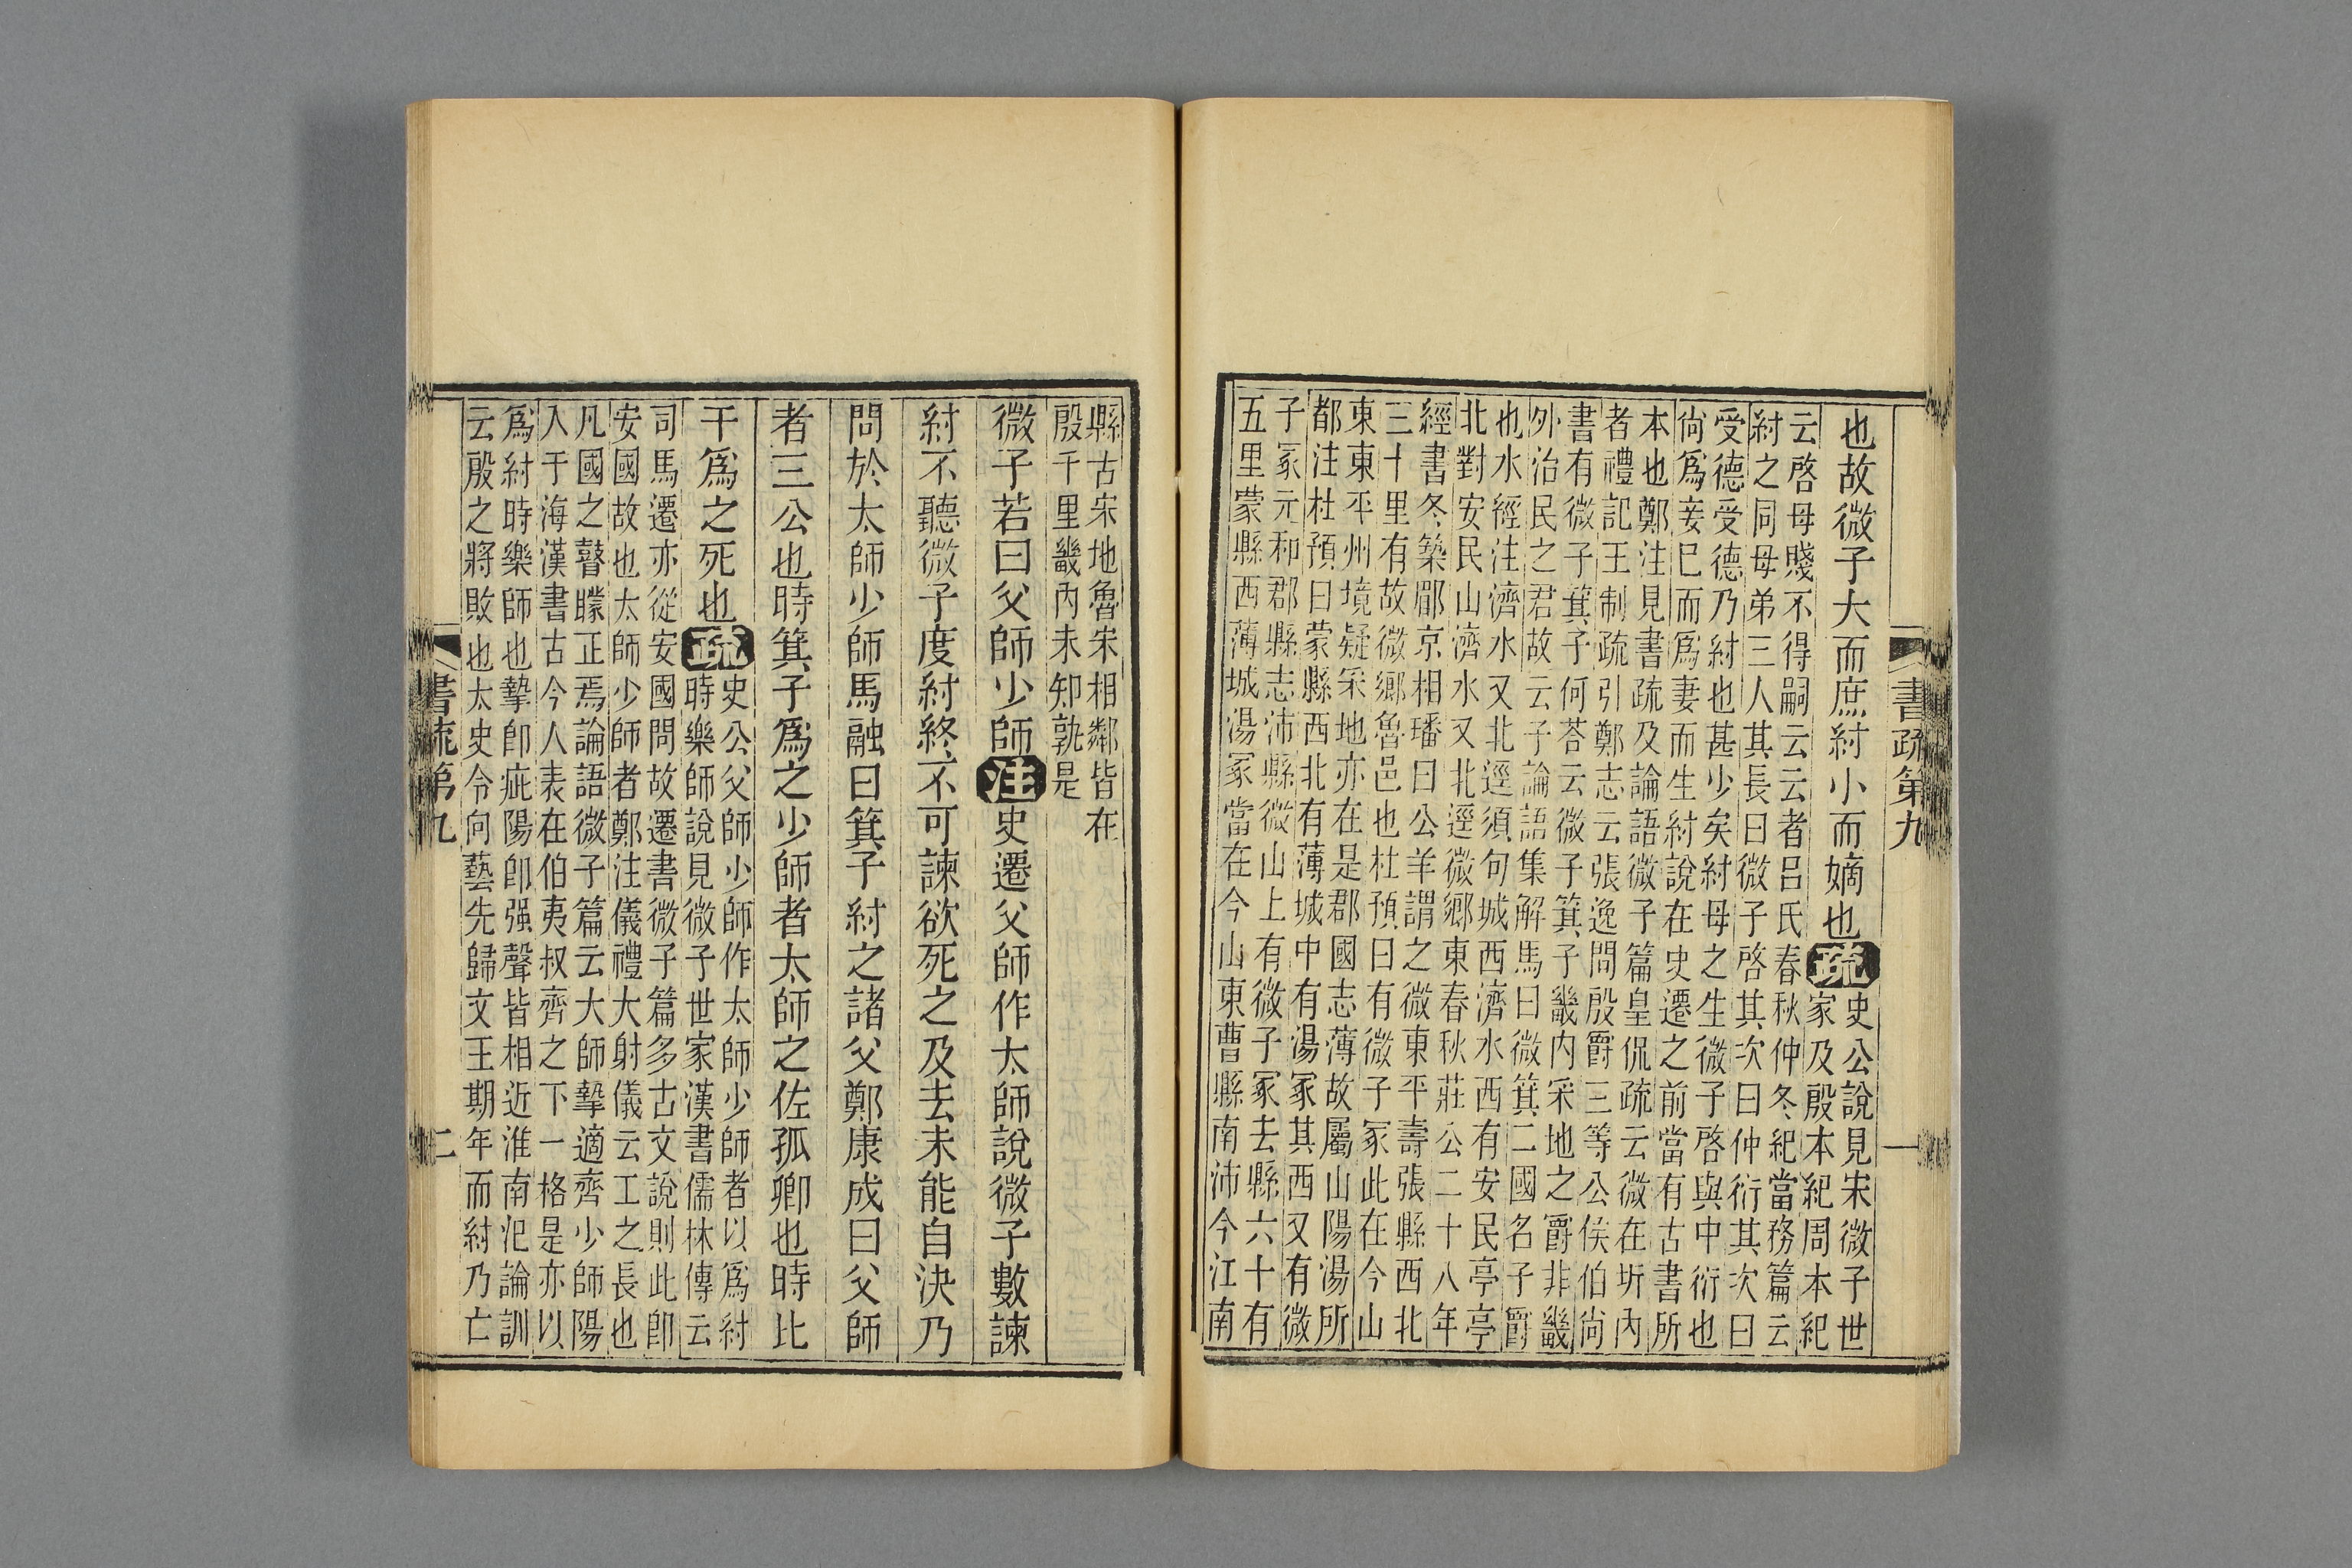 書疏第九
一
也故微子大而庶紂小而嫡也疏史公說見宋微子世
家及殷本紀周本紀
云啓母賤不得嗣云云者呂氏春秋仲冬紀當務篇云
紂之同母弟三人其長曰微子啓其次曰仲衍其次曰
受德受德乃紂也甚少矣紂母之生微子啓與中衍也
尙爲妾巳而爲妻而生紂說在史遷之前當有古書所
本也鄭注見書疏及論語微子篇皇侃疏云微在圻內
者禮記王制疏引鄭志云張逸問殷爵三等公侯伯尙
書有微子箕子何荅云微子箕子畿內采地之爵非畿
外治民之君故云子論語集解馬曰微箕二國名子爵
也水經注濟水又北逕須句城西濟水西有安民亭亭
北對安民山濟水又北逕微鄉東春秋莊公二十八年
經書冬築郿京相璠曰公羊謂之微東平壽張縣西北
三十里有故微鄉魯邑也杜預曰有微子冢此在今山
東東平州境疑采地亦在是郡國志薄故屬山陽湯所
都注杜預曰蒙縣西北有薄城中有湯冢其西又有微
子冢元和郡縣志沛縣微山上有微子冢去縣六十有
五里蒙縣西薄城湯冢當在今山東曹縣南沛今江南
縣古宋地魯宋相鄰皆在
殷千里畿內未知孰是
微子若曰父師少師注史遷父師作太師說微子數諫
紂不聽微子度紂終不可諫欲死之及去未能自決乃
問於太師少師馬融曰箕子紂之諸父鄭康成曰父師
者三公也時箕子爲之少師者太師之佐孤卿也時比
干爲之死也疏史公父師少師作太師少師者以爲紂
時樂師說見微子世家漢書儒林傳云
司馬遷亦從安國問故遷書微子篇多古文說則此卽
安國故也太師少師者鄭注儀禮大射儀云工之長也
凡國之瞽矇正焉論語微子篇云大師摯適齊少師陽
入于海漢書古今人表在伯夷叔齊之下一格是亦以
爲紂時樂師也摯卽疵陽卽强聲皆相近淮南氾論訓
云殷之將敗也太史令向藝先歸文王期年而紂乃亡
書疏第九
二